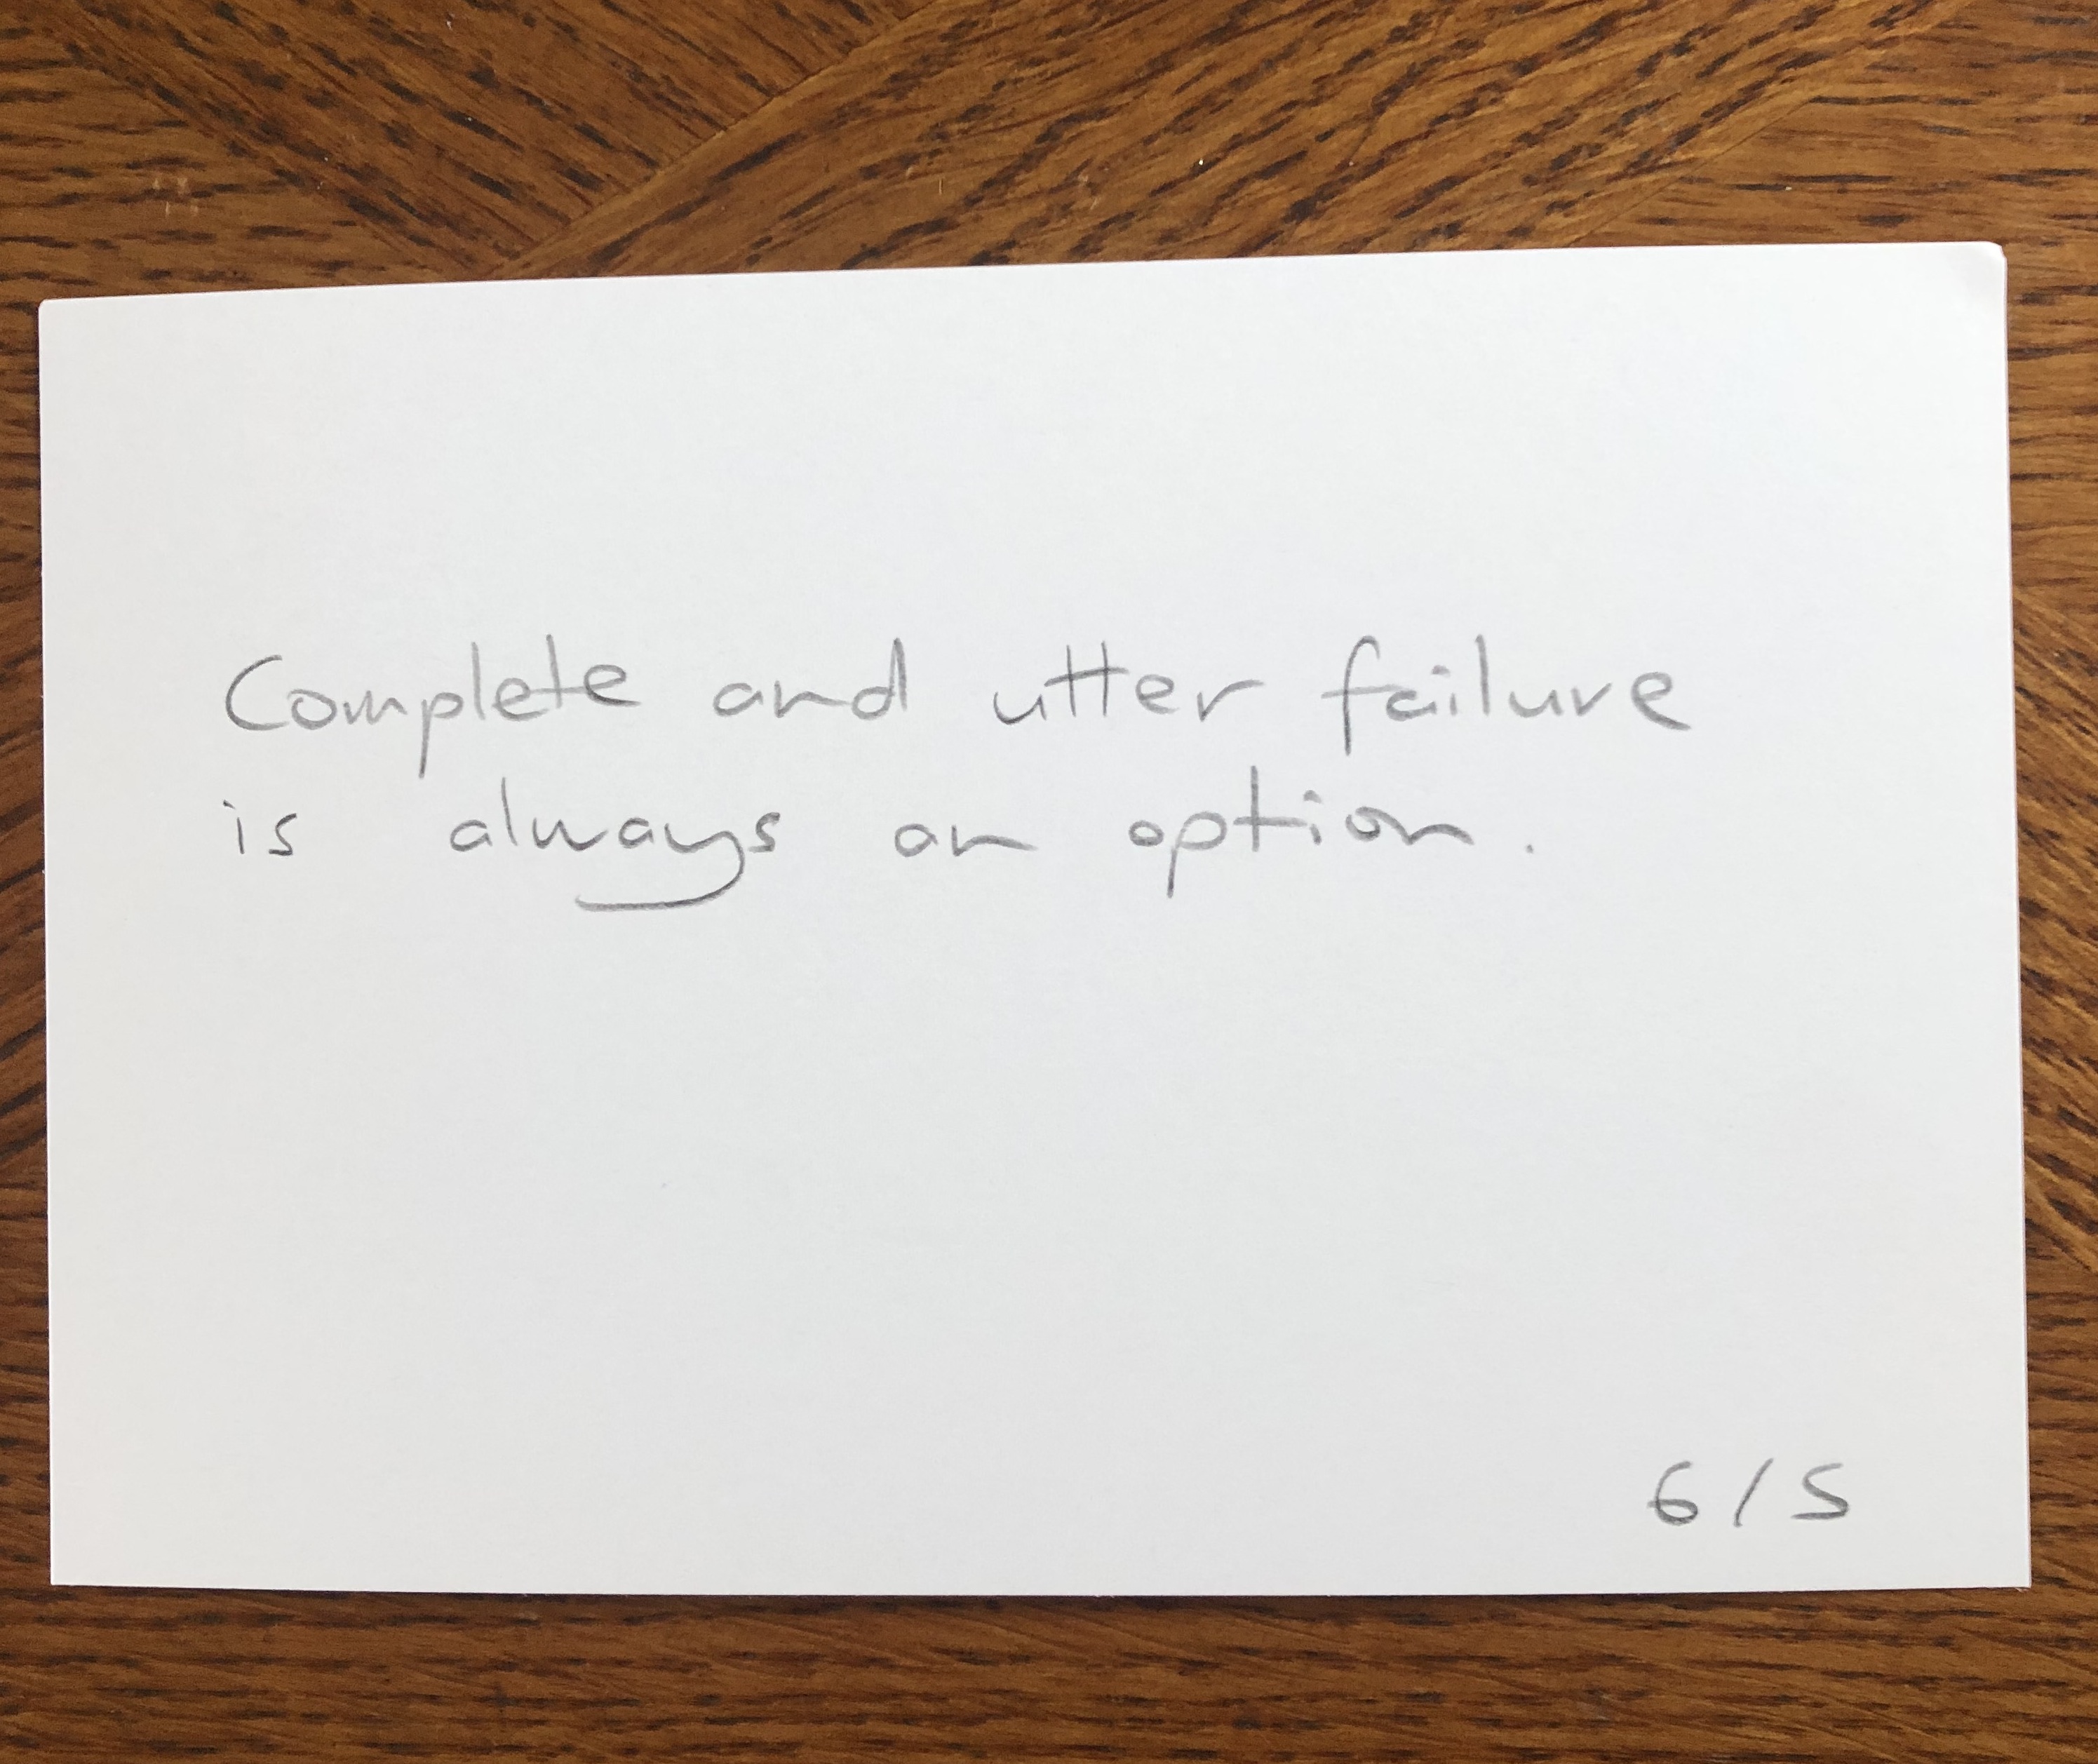 Complete and utter failure
is always an option.
6/5